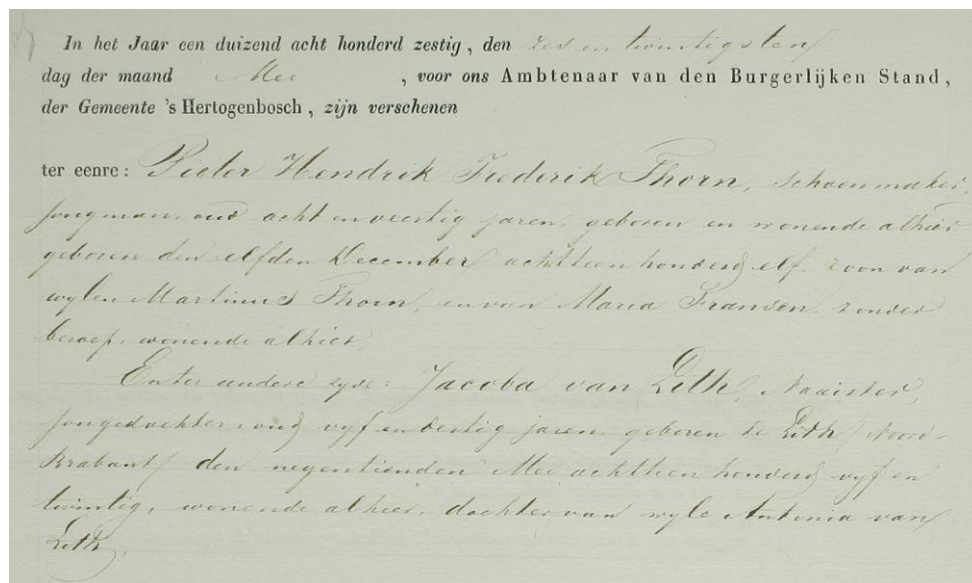 In het Jaar een duizend acht honderd zestig, den zes en twintigsten
dag der maand Mei , voor ons Ambtenaar van den Burgerlijken Stand,
der Gemeente 's Hertogenbosch, zijn verschenen
ter eenre: Pieter Hendrik Frederik Thorn, schoenmaker,
jongman, oud acht en veertig jaren, geboren en wonende alhier
geboren den elfden December achttienhonderd elf, zoon van
wylen Martinus Thorn, en van Maria Fransen, zonder
beroep, wonende alhier,
En ter andere zyde: Jacoba van Lith, Naaister,
jongedochter, oud vyf en dertig jaren, geboren te Lith (Noord-
Brabant) den negentienden Mei achttien honderd vyf en
twintig, wonende alhier, dochter van wyle Antonia van
Lith,